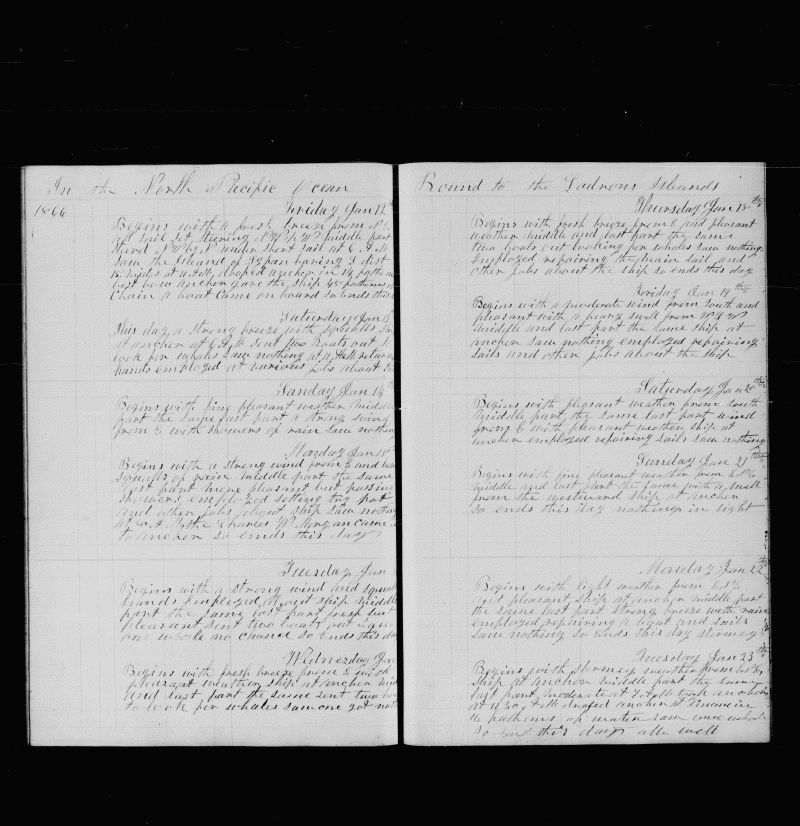 In the North Pacific Ocean
1866
Friday Jan 12th
Begins with a fresh breeze from N.E.
all sail set steering N W by W middle part
N W by N under short sail at 6 A M
Saw the Island of baring S dist
15 miles at 11 A M droped anchor in 14 fathoms
best bow anchor gave the ship 45 fathoms
Chain a boat came on board so ends this
Saturday Jan 13
This day a strong breeze with squalls
at anchor at 6 A M sent two Boats out to
look for whales saw nothing at 11 A M return
hands employed at various Jobs about
Sunday Jan 14th
Begins with fine pleasant weather middle
part the same last part a strong wind
from E with showers of rain saw nothing
Monday Jan 15th
Begins with a strong wind from E and
squalls of rain middle part the same
last part more pleasant but passing
showers employed setting try pot
and other jobs about ship saw nothing
at A M the Charles W Morgan came
to anchor so ends this day
Tuesday Jan
Begins with a strong wind and squalls
hands employed about ship middle
part the same last part
pleasant sent two boats out saw
one whale no chance so ends this day
Wednesday Jan
Begins with fresh breeze from E with
pleasant weather ship at anchor mid
and last part the same sent two boats
to look for whales saw one got not
Bound to the Ladrone Islands
Thursday Jan 18th
Begins with fresh breeze from E and pleasant
weather middle and last part the same
two boats out looking for whales saw nothing
Employed repairing the main sail and
other jobs about the ship so ends this day
Friday Jan 19th
Begins with a moderate wind from South and
pleasant with a heavy swell from W N W
middle and last part the same ship at
anchor saw nothing employed repairing
sails and other jobs about the ship
Saturday Jan 20th
Begins with pleasant weather from South
middle part the same last part wind
from E with pleasant weather ship at
anchor employed repairing sails saw nothing
Sunday Jan 21th
Begins with fine pleasant weather from
middle and last part the same with a swell
from the westward ship at anchor
so ends this day nothing in sight
Monday Jan 22th
Begins with light weather from
and pleasant ship at anchor middle part
the same last part strong breeze with rain
employed repairing a boat and sails
saw nothing so ends this day stormey
Tuesday Jan 23th
Begins with stormey weather from
ship at anchor middle part the same
last part moderate at 7 A M took anchor
at 11 30 A M droped anchor at
16 fathoms of water saw once
so ends this day all well